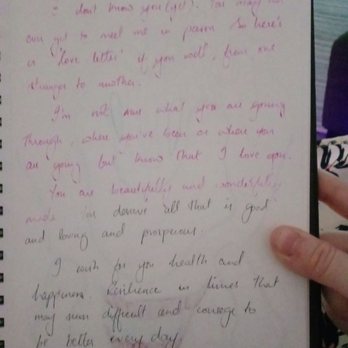 I don't know you (yet). You may not
ever get to meet me in person. So here's
a "love letter" if you will, from one
stranger to another.
I'm not sure what you are going
through, where you've been or where you
are going but know that I love you.
You are beautifully and wonderfully
made in deserve all that is good
and loving and prosperous.
I wish for you health and
happiness. Resilience in times that
may seem difficult and courage to
be better every day.